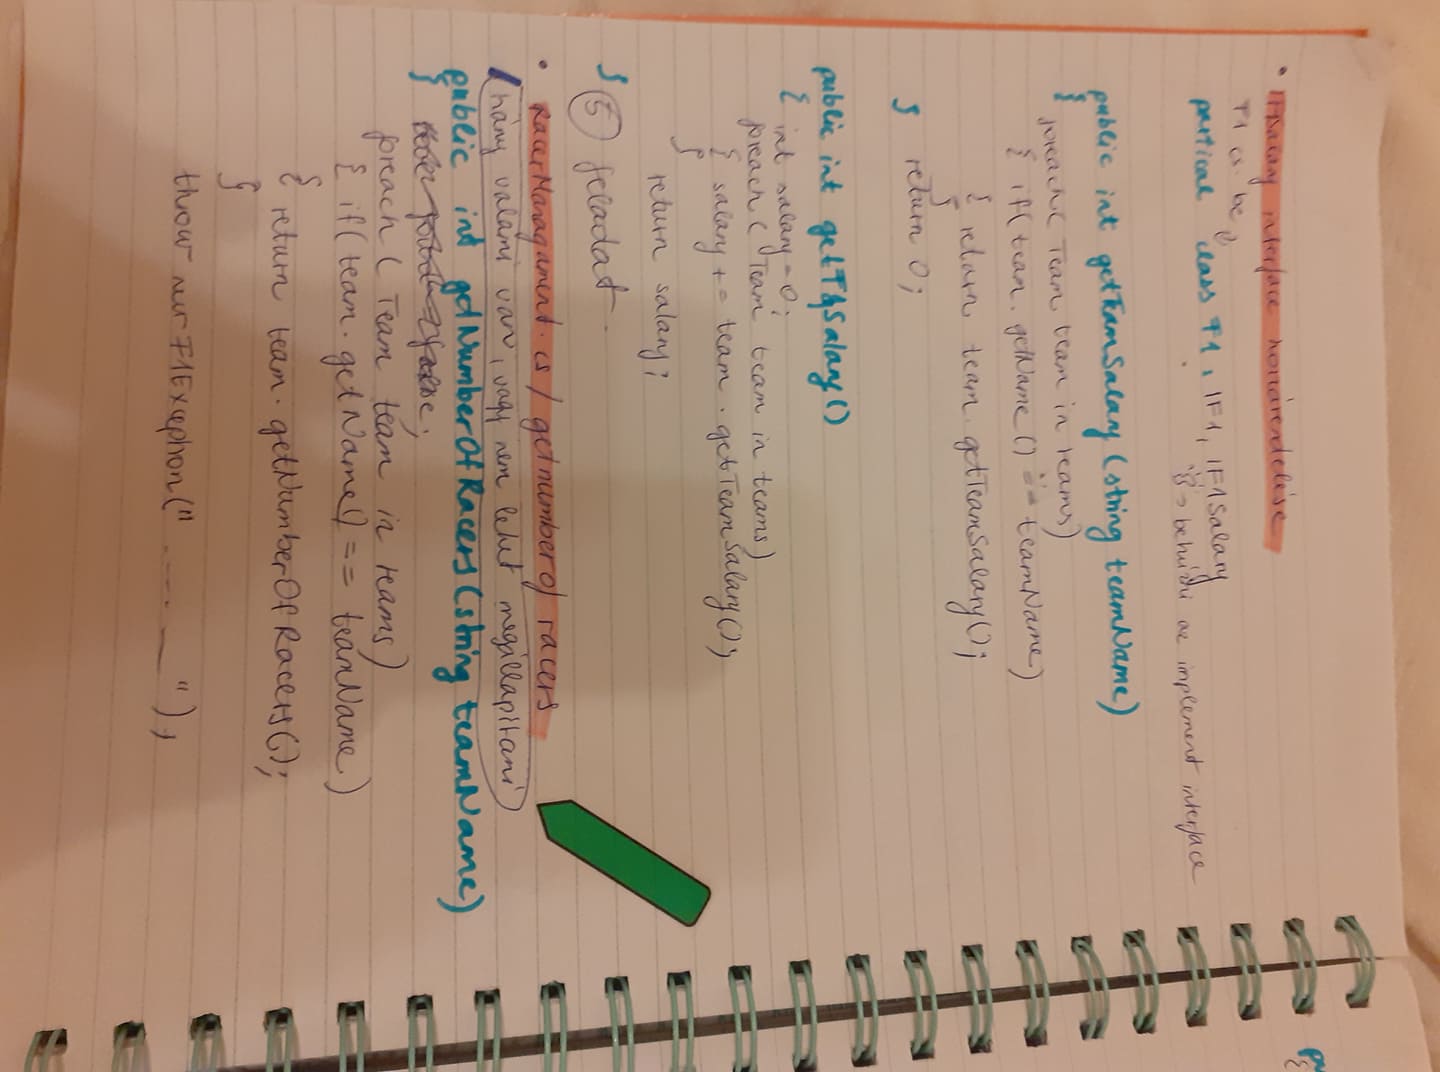 • IF1Salary interface hozzárendelése
F1.cs-be
partial class F1 : IF1, IF1Salary
behúzni az implement interface
public int getTeamSalary (string teamName)
{
foreach ( Team team in teams)
{ if (team.getName() == teamName)
{ return team.getTeamSalary();
}
return 0;
}
public int getF1Salary()
{ int salary = 0;
foreach ( Team team in teams)
{ salary += team.getTeamSalary();
}
return salary;
}
5 feladat.
• RacerManagament.cs / getnumberof racers
(hány valami van, vagy nem lehet megállapítani)
public int getNumberOfRacers (string teamName)
{
foreach ( Team team in teams)
{ if (team.getName() == teamName)
{ return team.getNumberOfRacers();
}
throw new F1Exception(" ---- ");